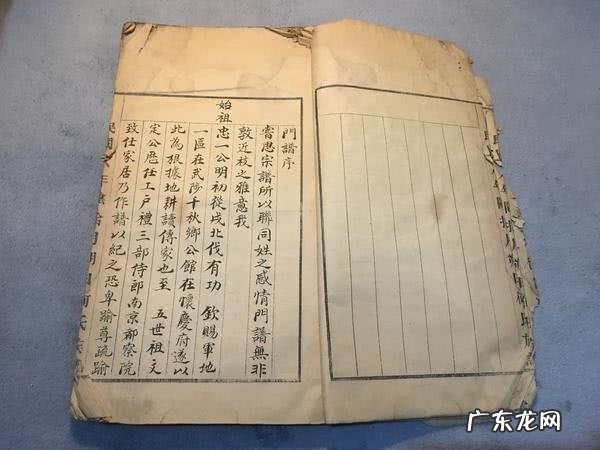 門譜序
嘗思宗譜所以聯同姓之感情門譜無非
敦近枝之雅意我
始祖
忠一公明初從戎北伐有功 欽賜軍地
一區在武陟千秋鄉公館在懷慶府遂以
此為根據地耕讀傳家也至 五世祖文
定公歷任工戶禮三部侍郎南京都察院
致仕家居乃作譜以紀之恐卑踰尊疏踰
广东龙网